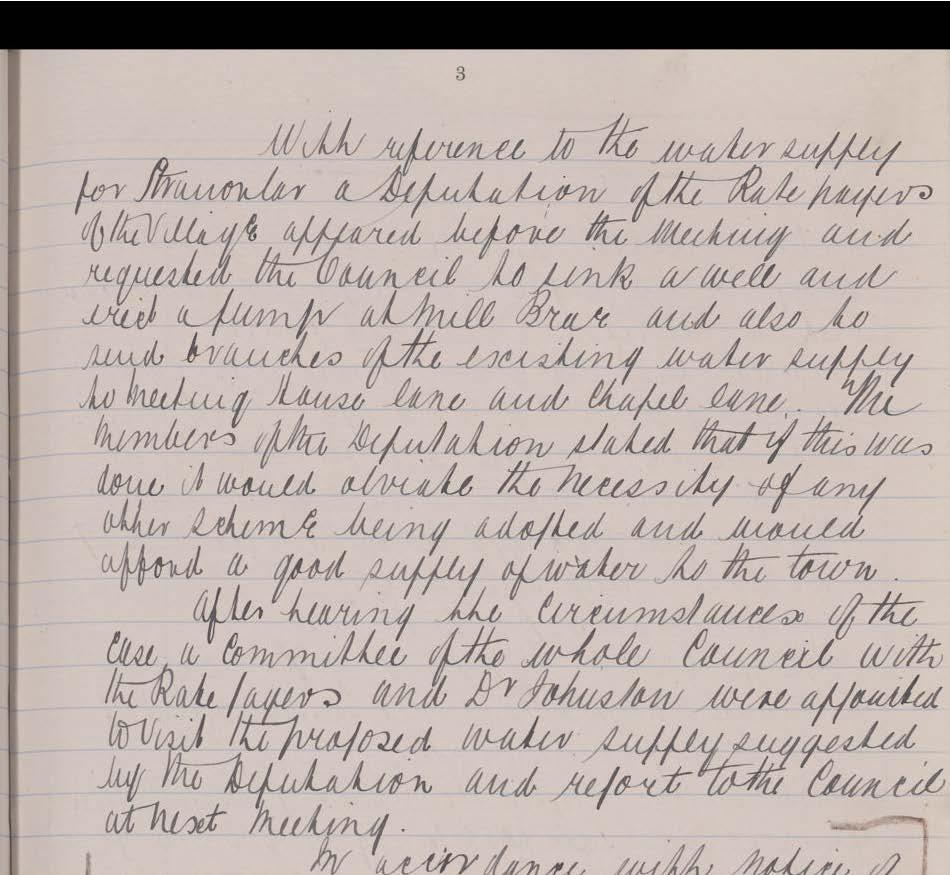 3
With reference to the water supply
for Stranorlar a Deputation of the Rate payers
of the Village appeared before the Meeting and
requested the Council to sink a well and
erect a pump at Mill Brae and also to
send branches of the existing water supply
to Meeting House lane and Chapel lane. The
Members of the Deputation stated that if this was
done it would obviate the necessity of any
other scheme being adopted and would
afford a good supply of water to the town.
After hearing the circumstances of the
case, a Committee of the whole Council with
the Rate payers and Dr Johnston were appointed
to visit the proposed water supply suggested
by the Deputation and report to the Council
at next Meeting.
In accordance with Notice of